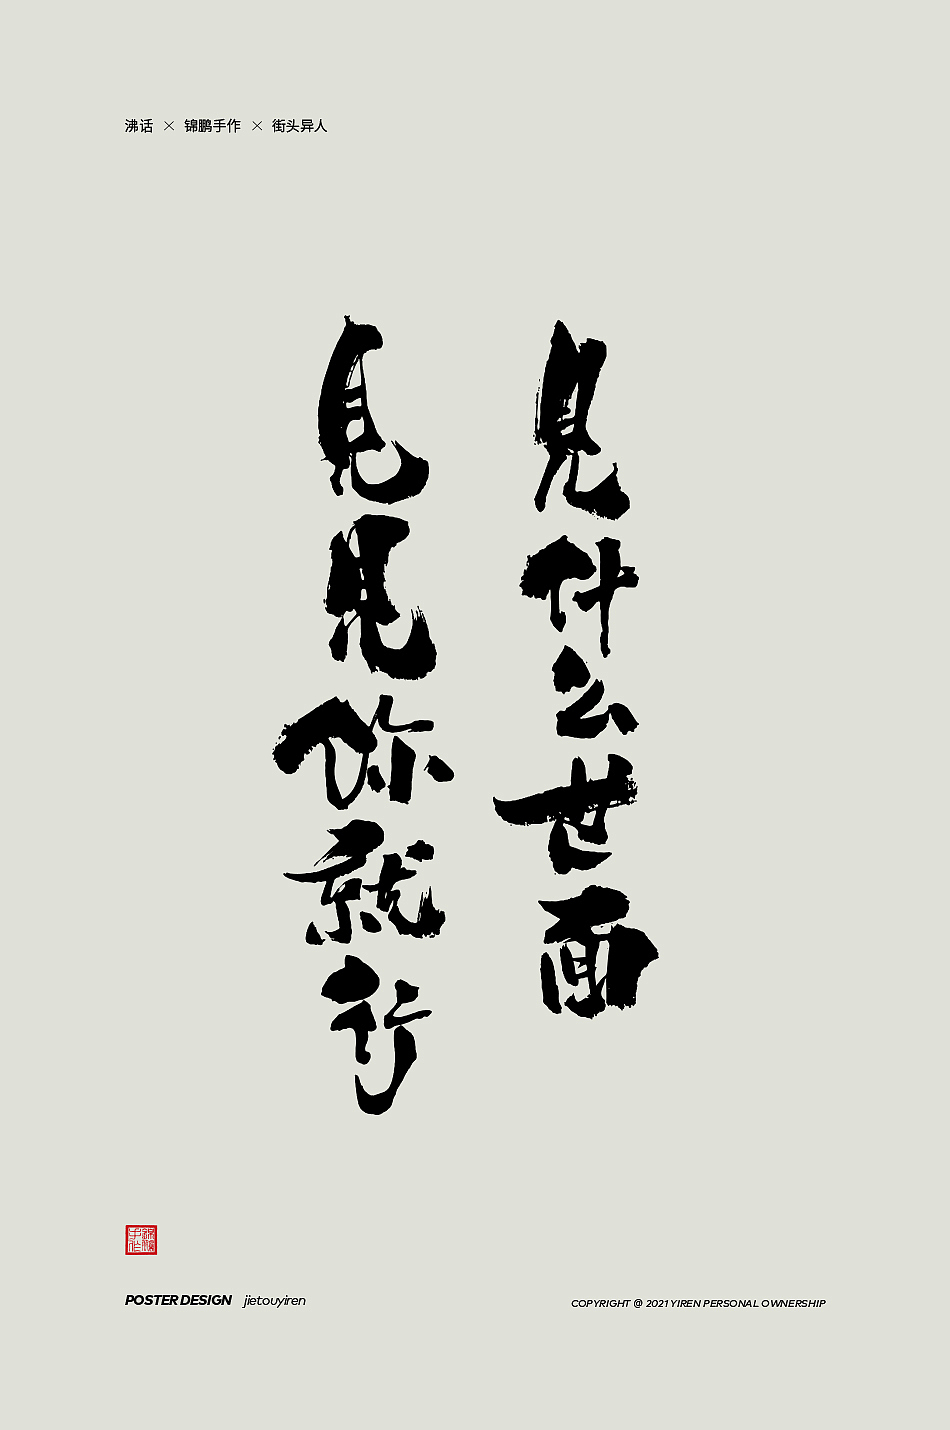 沸话 × 锦鹏手作 × 街头异人
見什么世面
見見你就行
锦鹏手作
POSTER DESIGN jietouyiren
COPYRIGHT @ 2021 YIREN PERSONAL OWNERSHIP